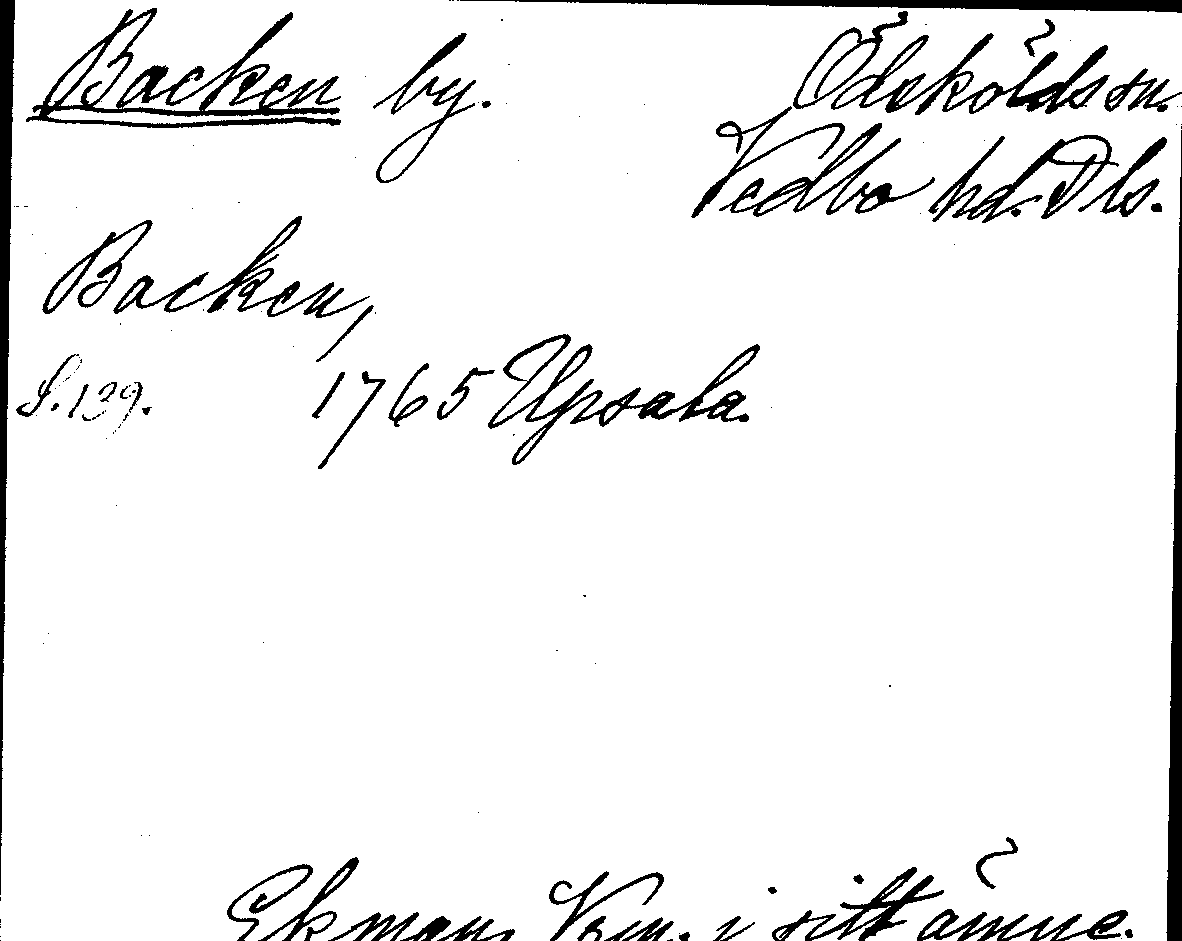 Backen by.
Ödskölds sn.
Vedbo hd. Dls.
Backen,
S. 139. 1765 Upsala.
Ekman, Vbm. i sitt ämne.